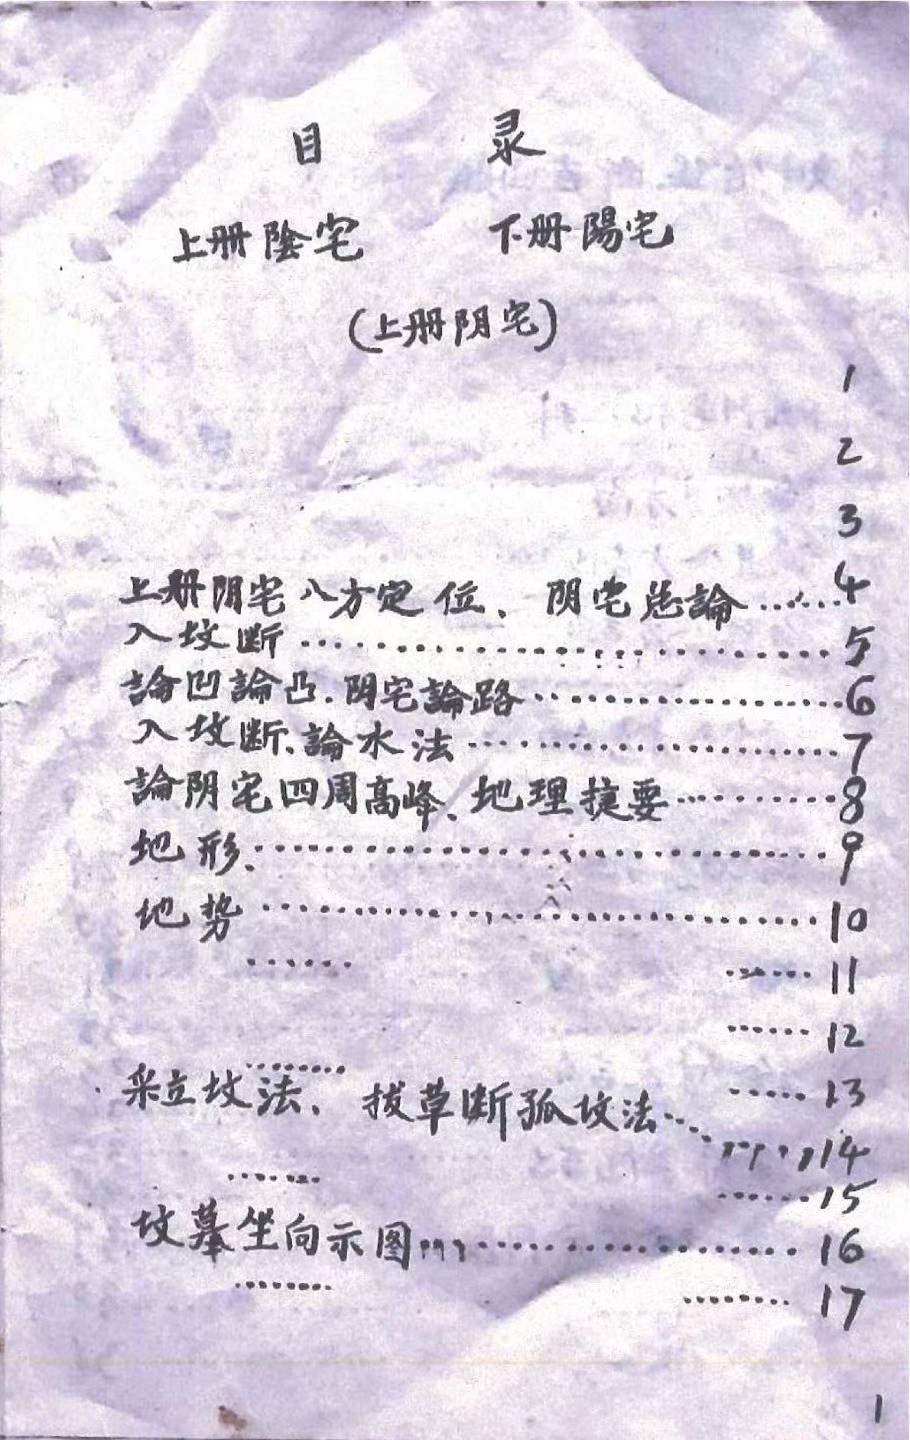 目 录
上册陰宅 下册陽宅
(上册阴宅)
1
2
3
上册阴宅八方定位、阴宅总論……4
入坟断……5
論凹論凸.阴宅論路……6
入坟断、論水法……7
論阴宅四周高峰、地理捷要……8
地形、……9
地势……10
…… ……11
……12
…… ……13
采立坟法、拔草断孤坟法……14
…… ……15
坟墓坐向示图……16
…… ……17
1